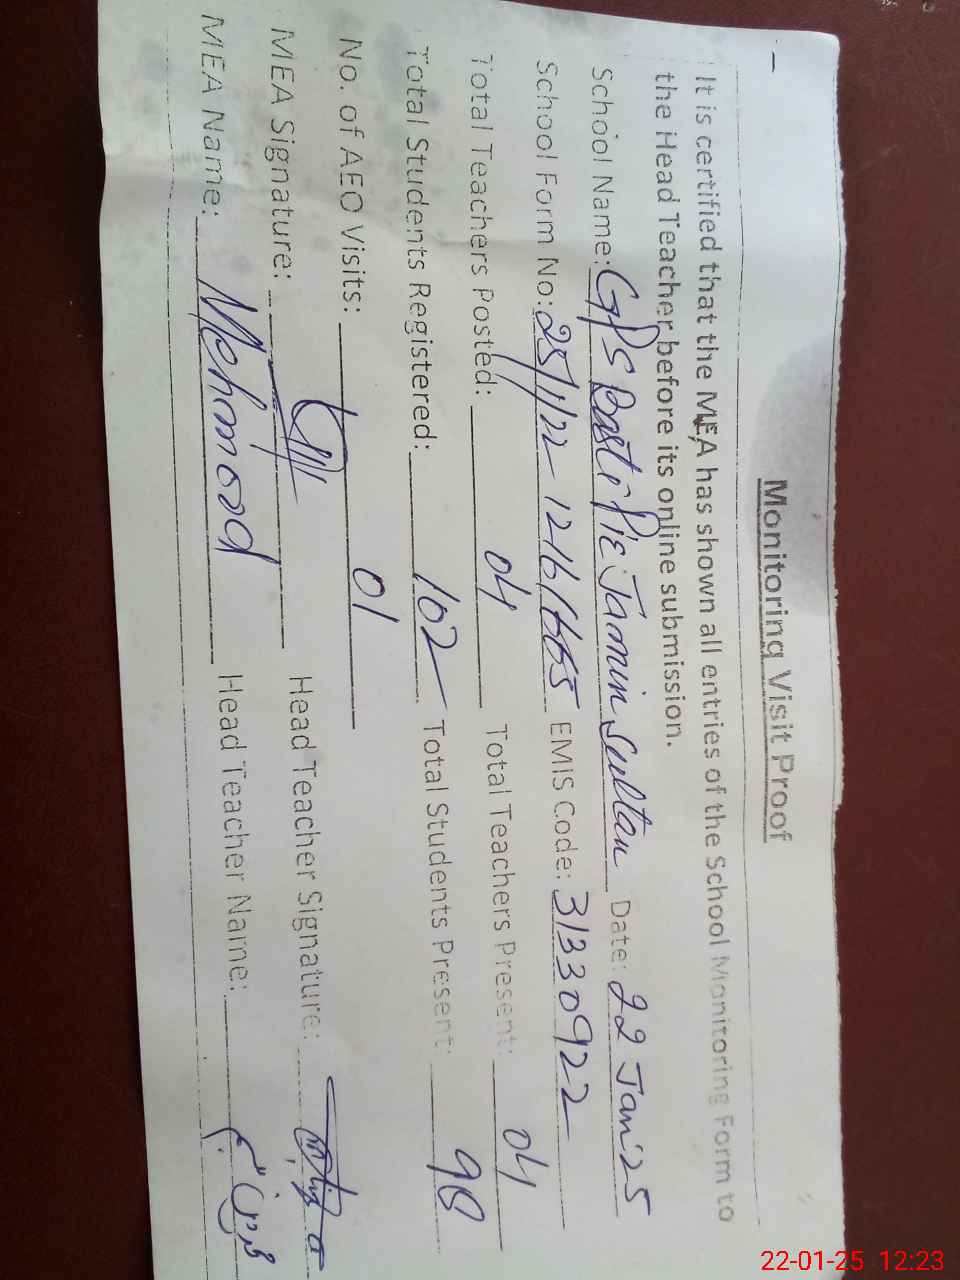 Monitoring Visit Proof
It is certified that the MEA has shown all entries of the School Monitoring Form to
the Head Teacher before its online submission.
School Name: GPS Basti Pir Jamin Sultan Date: 22 Jan'25
School Form No: 25/1/22-1216 EMIS Code: 31330922
Total Teachers Posted: 04 Total Teachers Present: 04
Total Students Registered: 102 Total Students Present: 98
No. of AEO Visits: 01
MEA Signature: Head Teacher Signature:
MEA Name: Mehmood Head Teacher Name:
22-01-25 12:23